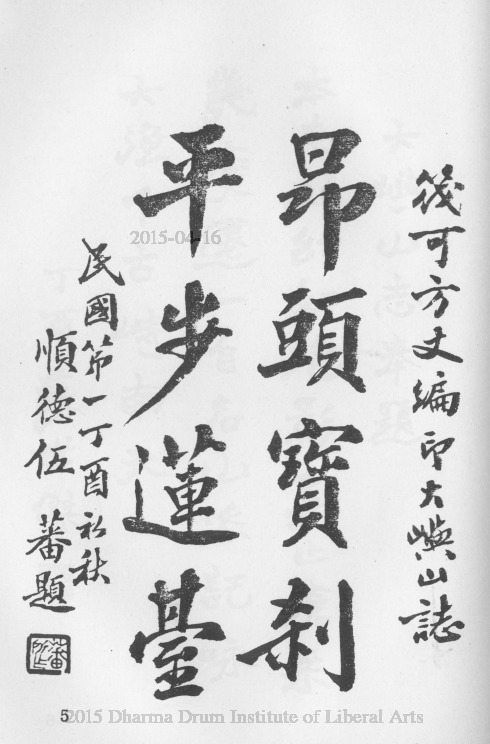 筏可方丈編印大嶼山誌
昂頭寶剎
平步蓮臺
民國第一丁酉初秋
順德伍蕃題
2015-04-16
5
2015 Dharma Drum Institute of Liberal Arts